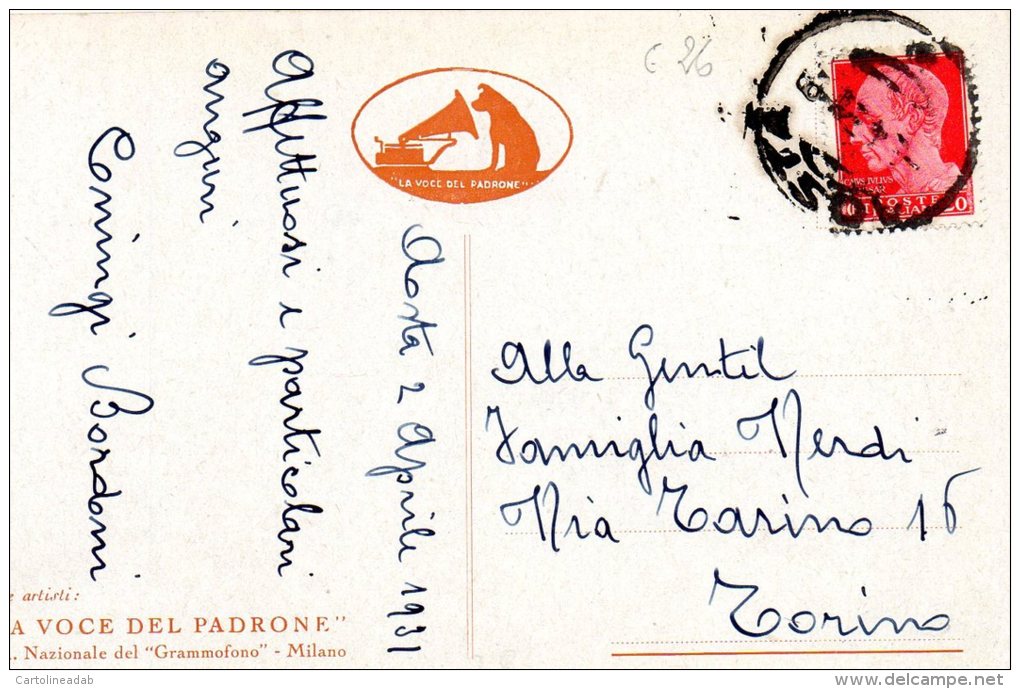 € 26
"LA VOCE DEL PADRONE"
POSTE
Affettuosi e particolari
auguri
Bordoni
Aosta 2 Aprile 1931
Alla Gentil
Famiglia Verdi
Via Tarino 16
Torino
e artisti:
A VOCE DEL PADRONE"
. Nazionale del "Grammofono" - Milano
Cartolineadab
www.delcampe.net